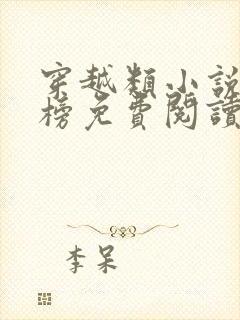 穿越類小說
榜免費閱讀
李呆